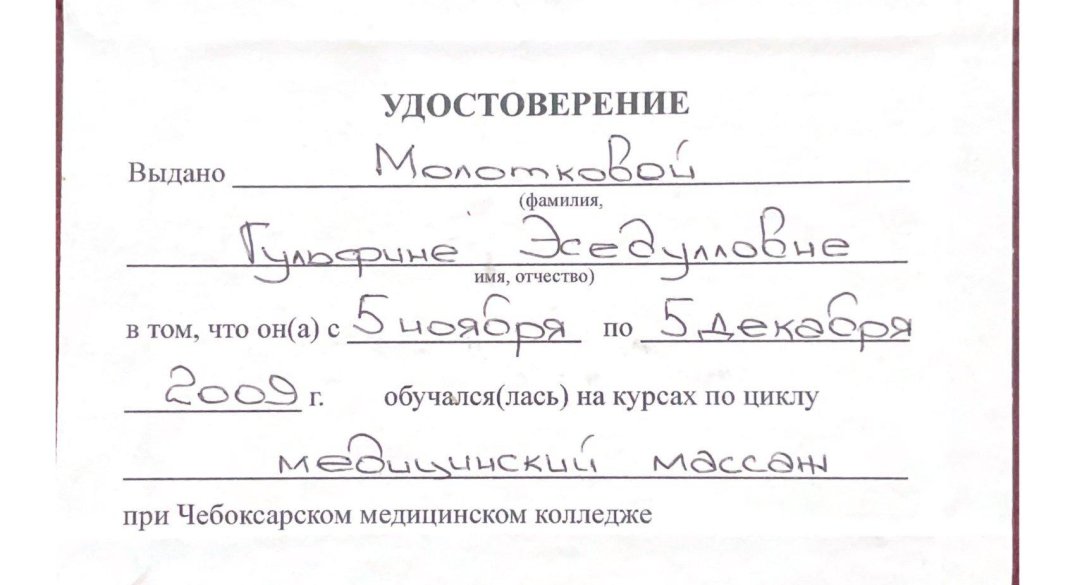 УДОСТОВЕРЕНИЕ
Выдано Молотковой
(фамилия,
Гульфине Эседулловне
имя, отчество)
в том, что он(а) с 5 ноября по 5 декабря
2009 г. обучался(лась) на курсах по циклу
медицинский массаж
при Чебоксарском медицинском колледже